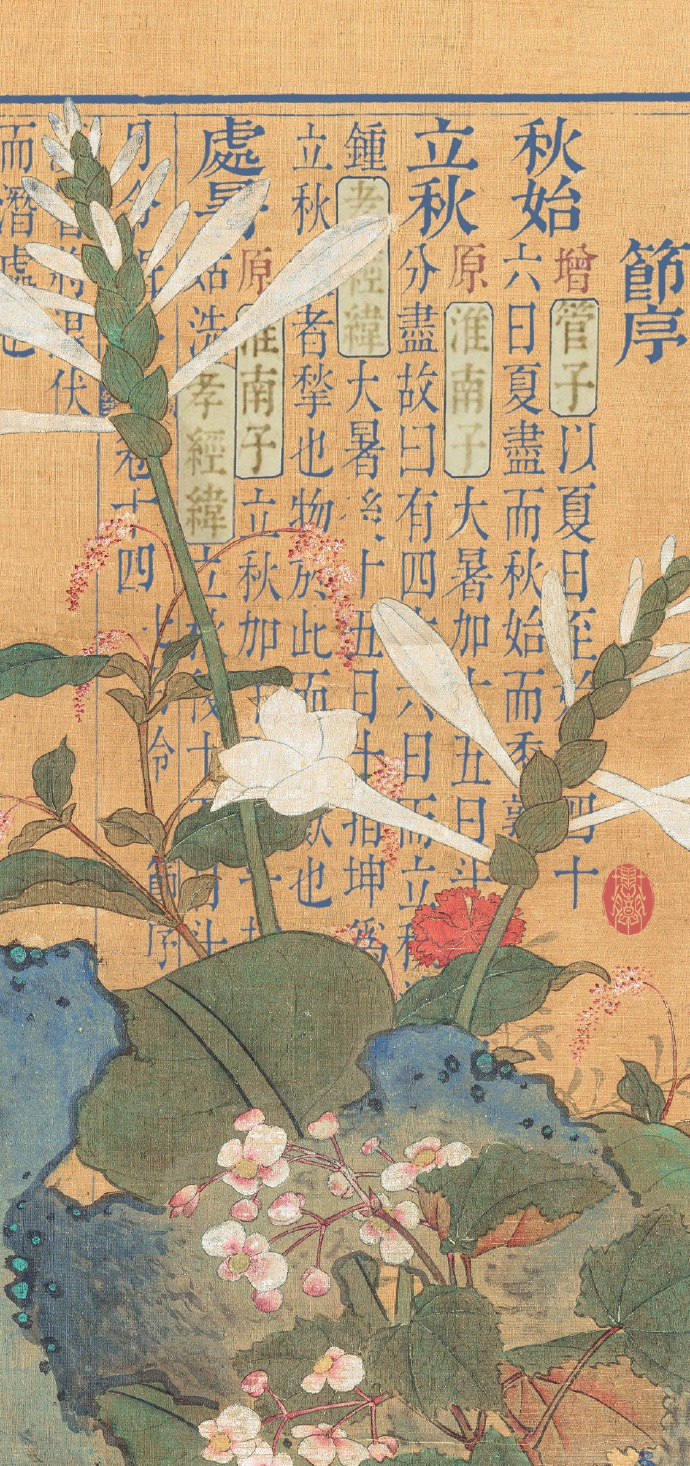 節序
秋始
增 管子 以夏日至始四十
六日夏盡而秋始而黍熟
立秋
原 淮南子 大暑加十五日斗
分盡故曰有四十六日而立秋
鍾 孝經緯 大暑後十五日斗指坤為
立秋者揫也物於此而斂也
處暑
原 淮南子 立秋加十
姑洗 孝經緯 立秋後十五日斗
月令 卷十四 七月令 節序
暑將退伏
而潛處也